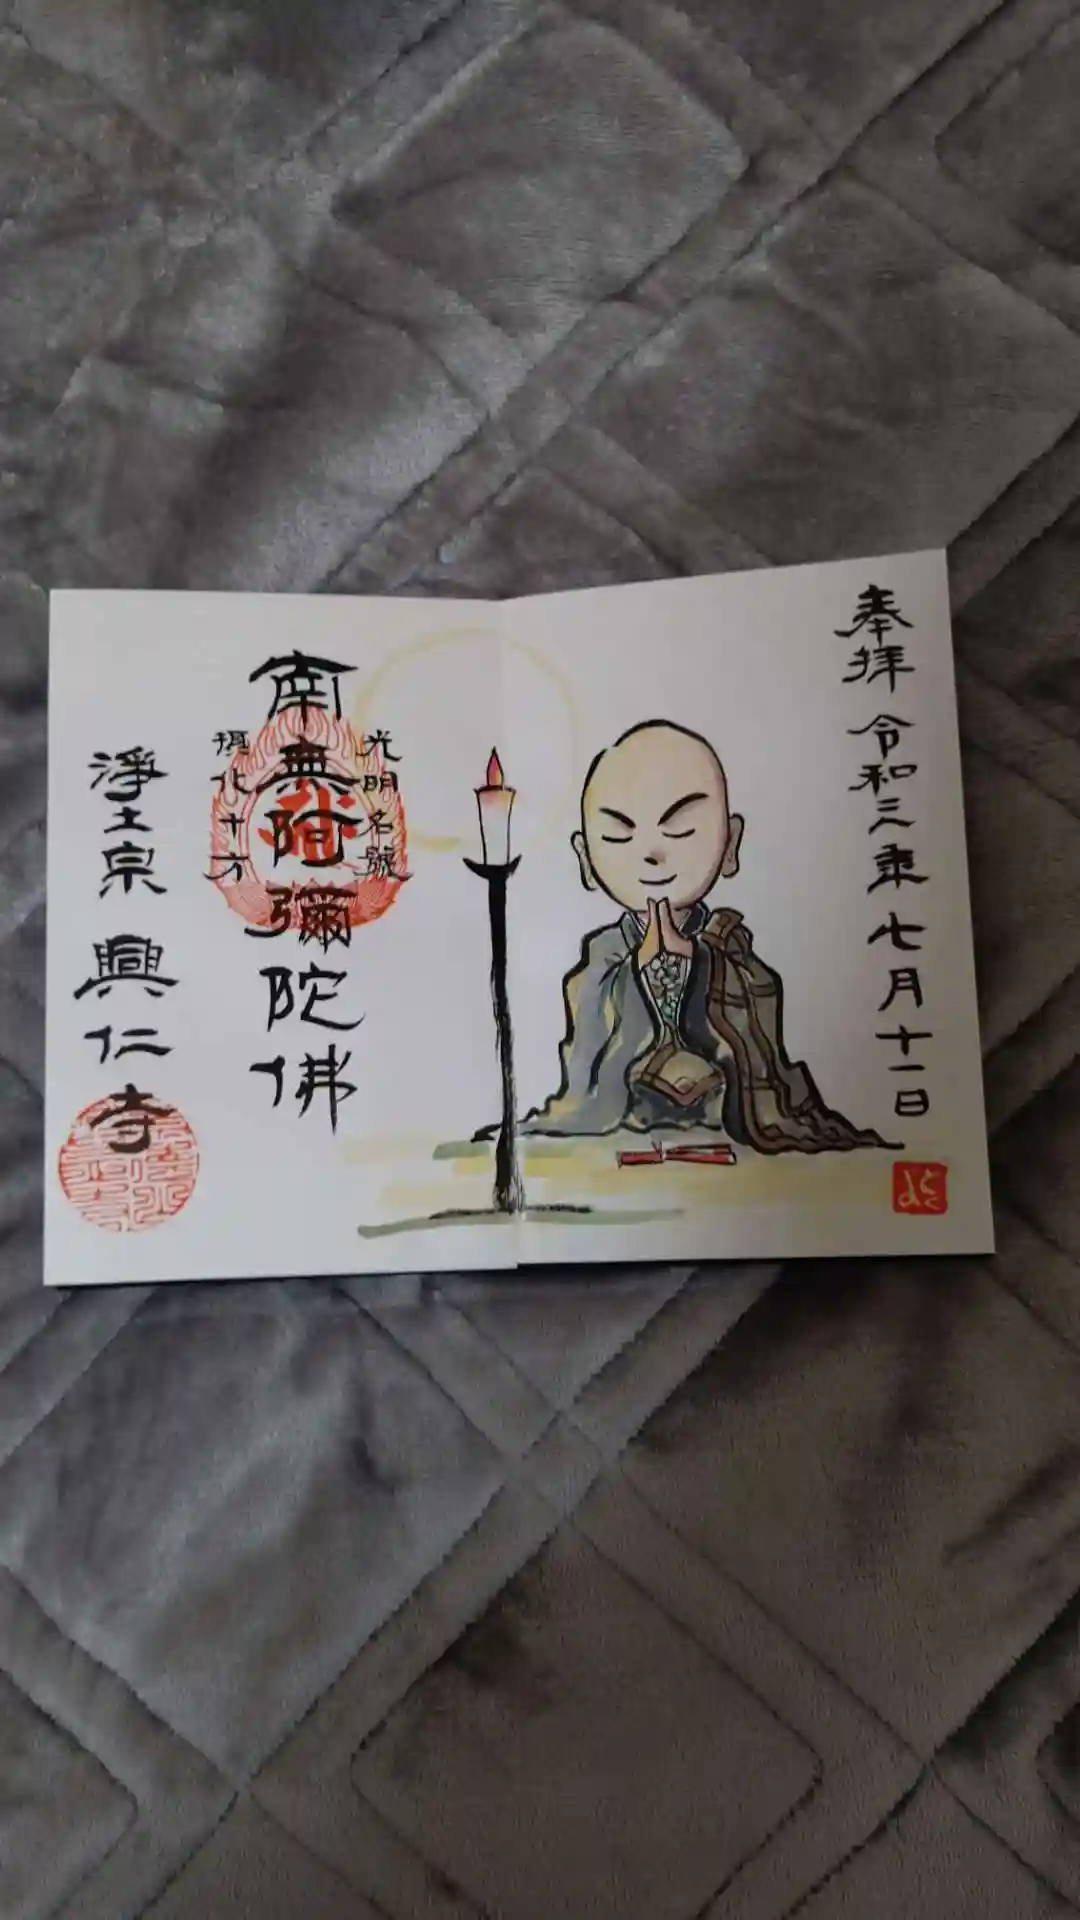 奉拝 令和三年七月十一日
光明名號
南無阿彌陀佛
摂化十方
淨土宗 興仁寺